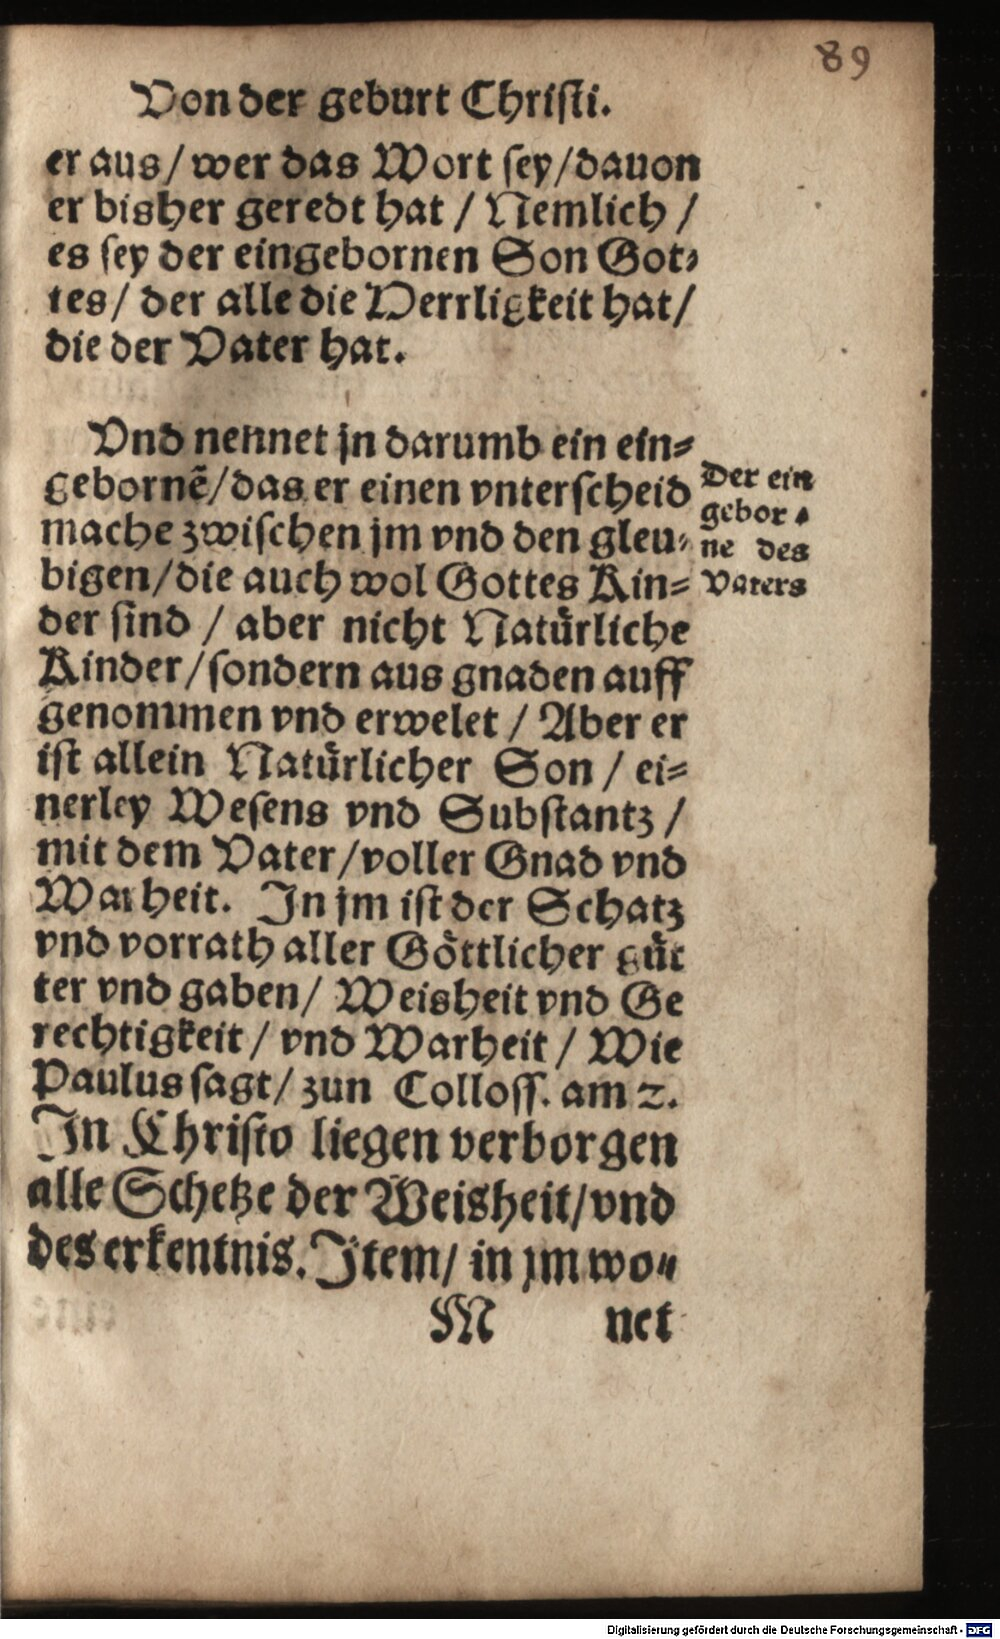 89
Von der geburt Christi.
er aus / wer das Wort sey / dauon
er bisher geredt hat / Nemlich /
es sey der eingebornen Son Got⸗
tes / der alle die Herrligkeit hat /
die der Vater hat.
Vnd nennet jn darumb ein ein⸗
gebornē / das er einen vnterscheid
mache zwischen jm vnd den gleu⸗
bigen / die auch wol Gottes Kin⸗
der sind / aber nicht Natürliche
Kinder / sondern aus gnaden auff
genommen vnd erwelet / Aber er
ist allein Natürlicher Son / ei⸗
nerley Wesens vnd Substantz /
mit dem Vater / voller Gnad vnd
Warheit. In jm ist der Schatz
vnd vorrath aller Göttlicher güt
ter vnd gaben / Weisheit vnd Ge
rechtigkeit / vnd Warheit / Wie
Paulus sagt / zun Colloss. am 2.
In Christo liegen verborgen
alle Schetze der Weisheit / vnd
des erkentnis. Item / in jm wo⸗
M net
Der ein
gebor⸗
ne des
Vaters
Digitalisierung gefördert durch die Deutsche Forschungsgemeinschaft - DFG